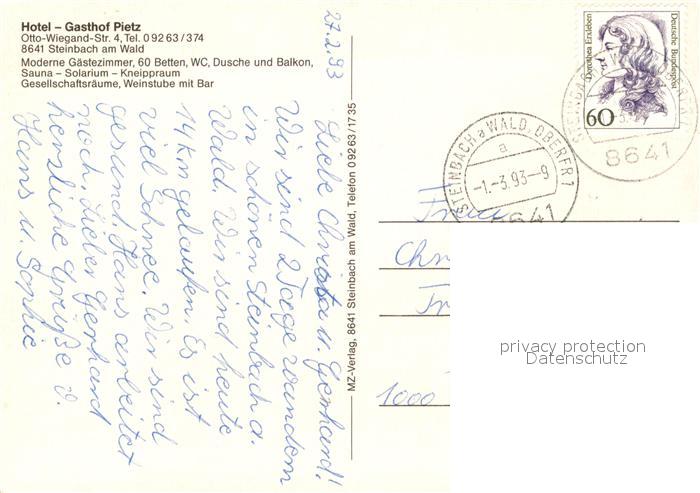 Hotel – Gasthof Pietz
Otto-Wiegand-Str. 4, Tel. 0 92 63 / 374
8641 Steinbach am Wald
Moderne Gästezimmer, 60 Betten, WC, Dusche und Balkon,
Sauna – Solarium – Kneippraum
Gesellschaftsräume, Weinstube mit Bar
27.2.93
Liebe Christa u. Gerhard!
Wir sind 2 Tage wandern
in schönen Steinbach a.
Wald. Wir sind heute
14 km gelaufen. Es ist
viel Schnee. Wir sind
gesund. Hans arbeitet
noch. Lieber Gerhard
herzliche Grüße v.
Hans u. Sophie
MZ-Verlag, 8641 Steinbach am Wald, Telefon 0 92 63 / 17 35
Dorothea Erxleben
Deutsche Bundespost
60
8641
STEINBACH a WALD, OBERFR 1
a
-1.-3.93-9
8641
Chr
1000
privacy protection
Datenschutz